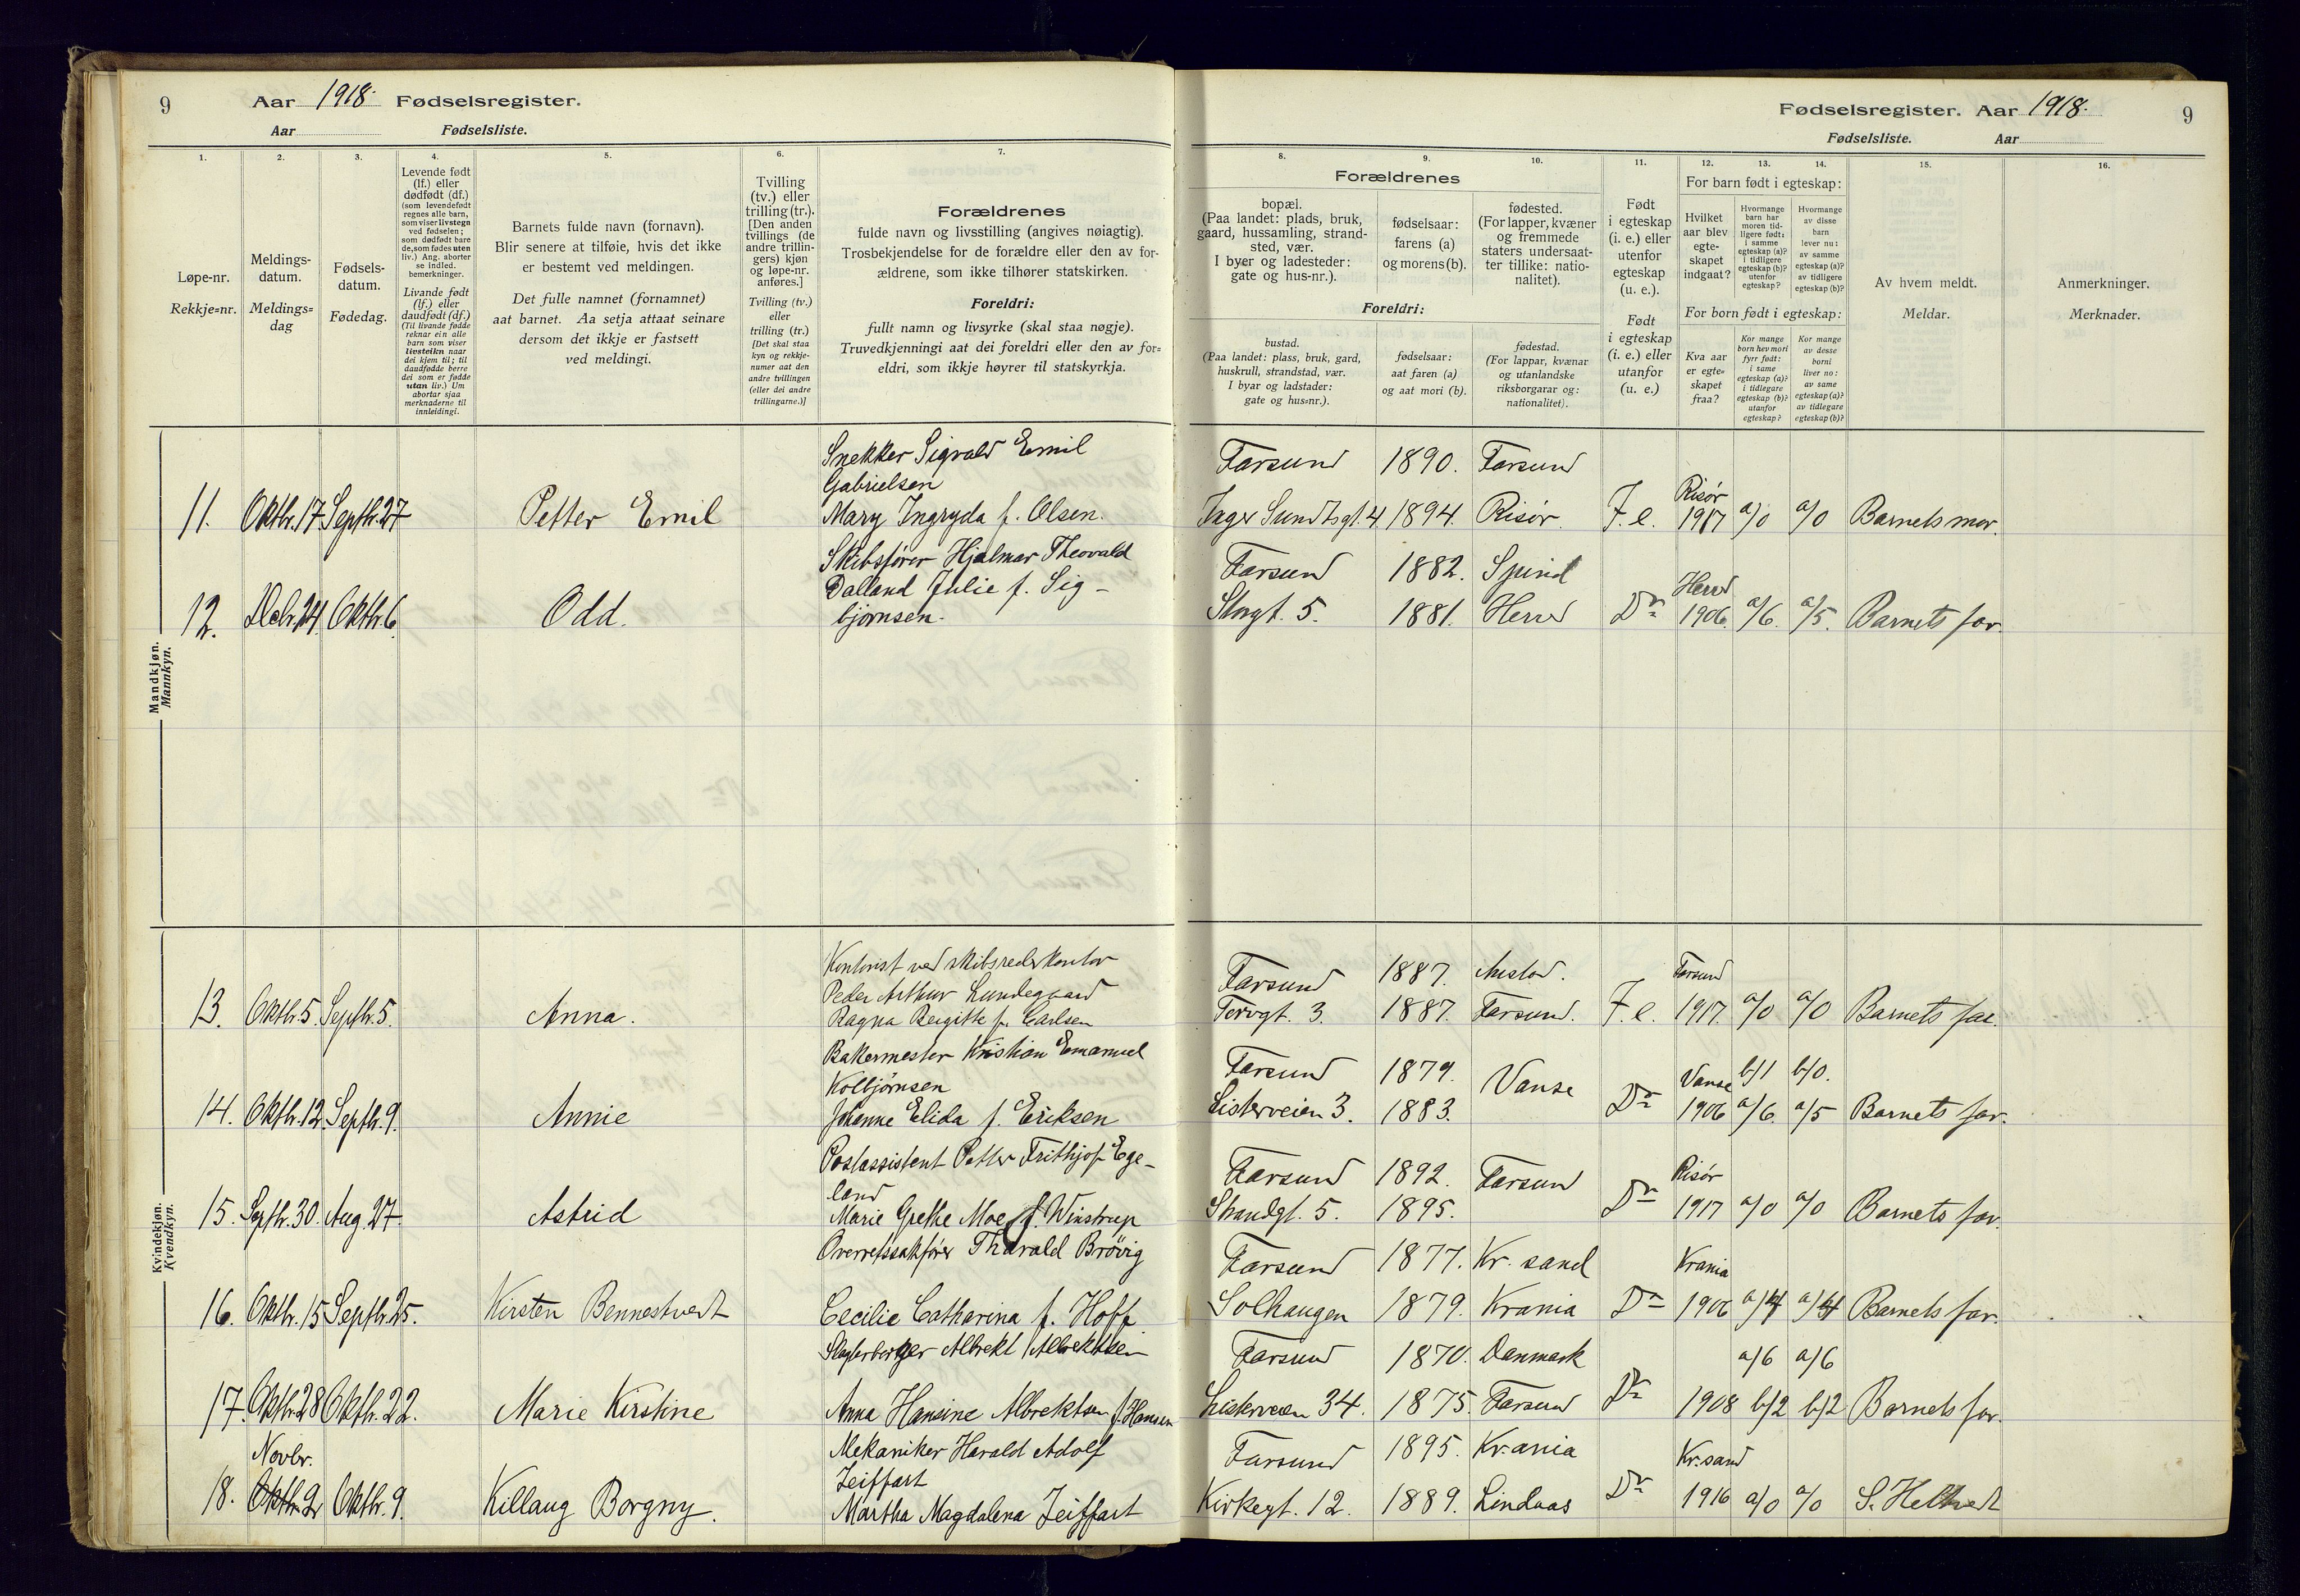 9
Aar 1918. Fødselsregister.
Aar Fødselsliste.
1.
2.
3.
4.
5.
6.
7.
Løpe-nr.
Rekkje=nr.
Meldings-
datum.
Meldings=
dag
Fødsels-
datum.
Fødedag.
Levende født
(lf.) eller
dødfødt (df.)
(som levendefødt
regnes alle barn,
som viser livstegn
ved fødselen;
som dødfødt bare
de, som fødes uten
liv.) Ang. aborter
se indled.
bemerkninger.
Livande født
(lf.) eller
daudfødt (df.)
(Til livande fødde
reknar ein alle
barn som viser
livsteikn naar
dei kjem til; til
daudfødde berre
dei som er fødde
utan liv.) Um
abortar sjaa
merknaderne til
innleidingi.
Barnets fulde navn (fornavn).
Blir senere at tilføie, hvis det ikke
er bestemt ved meldingen.
Det fulle namnet (fornamnet)
aat barnet. Aa setja attaat seinare
dersom det ikkje er fastsett
ved meldingi.
Tvilling
(tv.) eller
trilling (tr.).
[Den anden
tvillings (de
andre trillin-
gers) kjøn
og løpe-nr.
anføres.]
Tvilling (tv.)
eller
trilling (tr.)
[Det skal staa
kyn og rekkje-
numer aat den
andre tvillingen
(eller dei andre
trillingarne.)]
Forældrenes
fulde navn og livsstilling (angives nøiagtig).
Trosbekjendelse for de forældre eller den av for-
ældrene, som ikke tilhører statskirken.
Foreldri:
fullt namn og livsyrke (skal staa nøgje).
Truvedkjenningi aat dei foreldri eller den av for=
eldri, som ikkje høyrer til statskyrkja.
Mandkjøn.
Mannkyn.
11. Oktbr. 17 Septbr. 27 Petter Emil
Snekker Sigvald Emil
Gabrielsen
Mary Ingryda f. Olsen.
12. Decbr. 24. Oktbr. 6. Odd.
Skibsfører Hjalmar Theovald
Dalland Julie f. Sig-
bjørnsen.
Kvindekjøn.
Kvendkyn.
13. Oktbr. 5. Septbr. 5. Anna.
Kontorist ved skibsrederkontor
Peder Arthur Lundegaard
Ragna Bergitte f. Carlsen
14. Oktbr. 12. Septbr. 9. Annie
Bakermester Kristian Emanuel
Kolbjørnsen
Johanne Elida f. Eriksen
15. Septbr. 30. Aug. 27. Astrid
Postassistent Petter Frithjof Ege-
land
Marie Grethe Moe f. Winstrup
16. Oktbr. 15 Septbr. 25. Kirsten Bennestvedt
Overretssakfører Tharald Brøvig
Cecilie Catharina f. Hoff
17. Oktbr. 28 Oktbr. 22. Marie Kirstine
Albrekt Albrektsen
Anna Hansine Albrektsen f. Hansen
Novbr.
18. Oktbr. 2 Oktbr. 9. Killaug Borgny.
Mekaniker Harald Adolf
Zeiffart
Martha Magdalena Zeiffart
Fødselsregister. Aar 1918. 9
Fødselsliste. Aar
8.
9.
10.
11.
12.
13.
14.
15.
16.
Forældrenes
bopæl.
(Paa landet: plads, bruk,
gaard, hussamling, strand-
sted, vær.
I byer og ladesteder:
gate og hus-nr.).
fødselsaar:
farens (a)
og morens (b).
fødested.
(For lapper, kvæner
og fremmede
staters undersaat-
ter tillike: natio-
nalitet).
Foreldri:
bustad.
(Paa landet: plass, bruk, gard,
huskrull, strandstad, vær.
I byar og ladstader:
gate og hus=nr.).
fødselsaar:
aat faren (a)
og aat mori (b).
fødestad.
(For lappar, kvænar
og utanlandske
riksborgarar og:
nationalitet).
Født
i egteskap
(i. e.) eller
utenfor
egteskap
(u. e.).
Født
i egteskap
(i. e.) eller
utanfor
(u. e.)
For barn født i egteskap:
Hvilket
aar blev
egte-
skapet
indgaat?
Hvormange
barn har
moren tid-
ligere født:
i samme
egteskap (a)?
i tidligere
egteskap (b)?
utenfor
egteskap?
Hvormange
av disse
barn
lever nu:
av samme
egteskap (a)?
av tidligere
egteskap (b)?
For born født i egteskap:
Kva aar
er egte=
skapet
fraa?
Kor mange
born hev mori
fyrr født:
i same
egteskap (a)?
i tidlegare
egteskap (b)?
utanfor
egteskap?
Kor mange
av desse
borni
liver no:
av same
egteskap (a)?
av tidlegare
egteskap (b)?
Av hvem meldt.
Meldar.
Anmerkninger.
Merknader.
Farsund 1890. Farsund
Risør
Inger Sundtsgt. 4 1894. Risør. I. e. 1917 a/0 a/0 Barnets mor.
Farsund 1882. Spind
Herred
Storgt. 5. 1881. Herred Do 1906. a/6. a/5. Barnets far.
Farsund 1887. Farsund
Torvgt. 3. 1887. Farsund. I. e. 1917. a/0 a/0 Barnets far.
Farsund 1879. Vanse Vanse b/1 b/0.
Listerveien 3. 1883. Do 1906 a/6. a/5 Barnets far.
Farsund 1892. Farsund Risør
Strandgt. 5. 1895. Do 1917 a/0 a/0 Barnets far.
Farsund 1877. Kr. sand Krania
Solhaugen 1879. Krania Do 1906 a/4 a/4 Barnets far.
Farsund 1870. Danmark a/6 a/6
Listerveien 34. 1875. Farsund Do 1908 b/2 b/2 Barnets far.
Farsund 1895. Kr.ania Kr.sand
Kirkegt. 12. 1889. Lindaas Do 1916 a/0 a/0 S. Helvedt